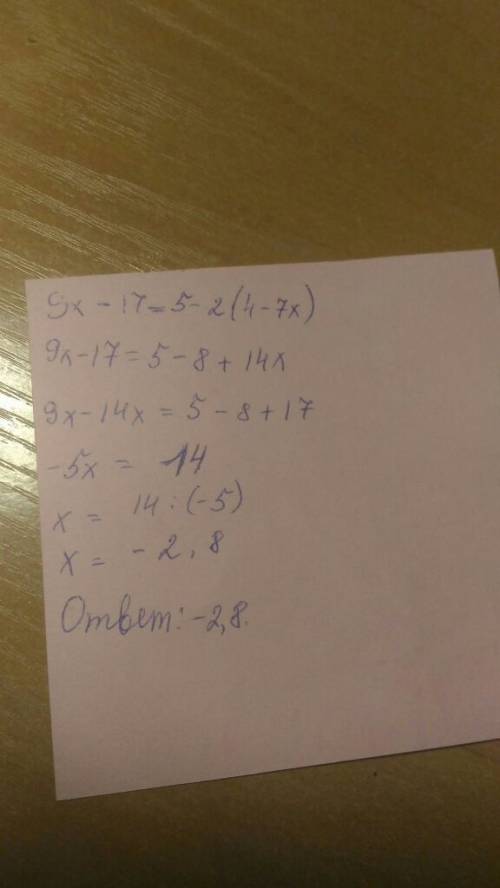 9x - 17 = 5 - 2(4 - 7x)
9x - 17 = 5 - 8 + 14x
9x - 14x = 5 - 8 + 17
-5x = 14
x = 14 : (-5)
x = -2,8
Ответ: -2,8.